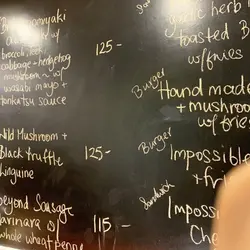 broccoli, leek,
cabbage - hedgehog
mushroom - w/
wasabi mayo +
tonkatsu sauce
125-
Wild Mushroom +
Black truffle
Linguine
125-
Beyond Sausage
Marinara w/
whole wheat penne
115-
garlic herb
toasted B
w/ fries
Burger
Hand made
+ mushroo
w/ fri
Burger
Impossible
+ fri
Sandwich
Imposs
Che